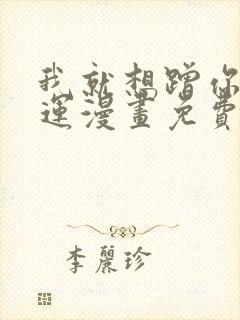 我就想蹭你
運漫畫免費
李麗珍